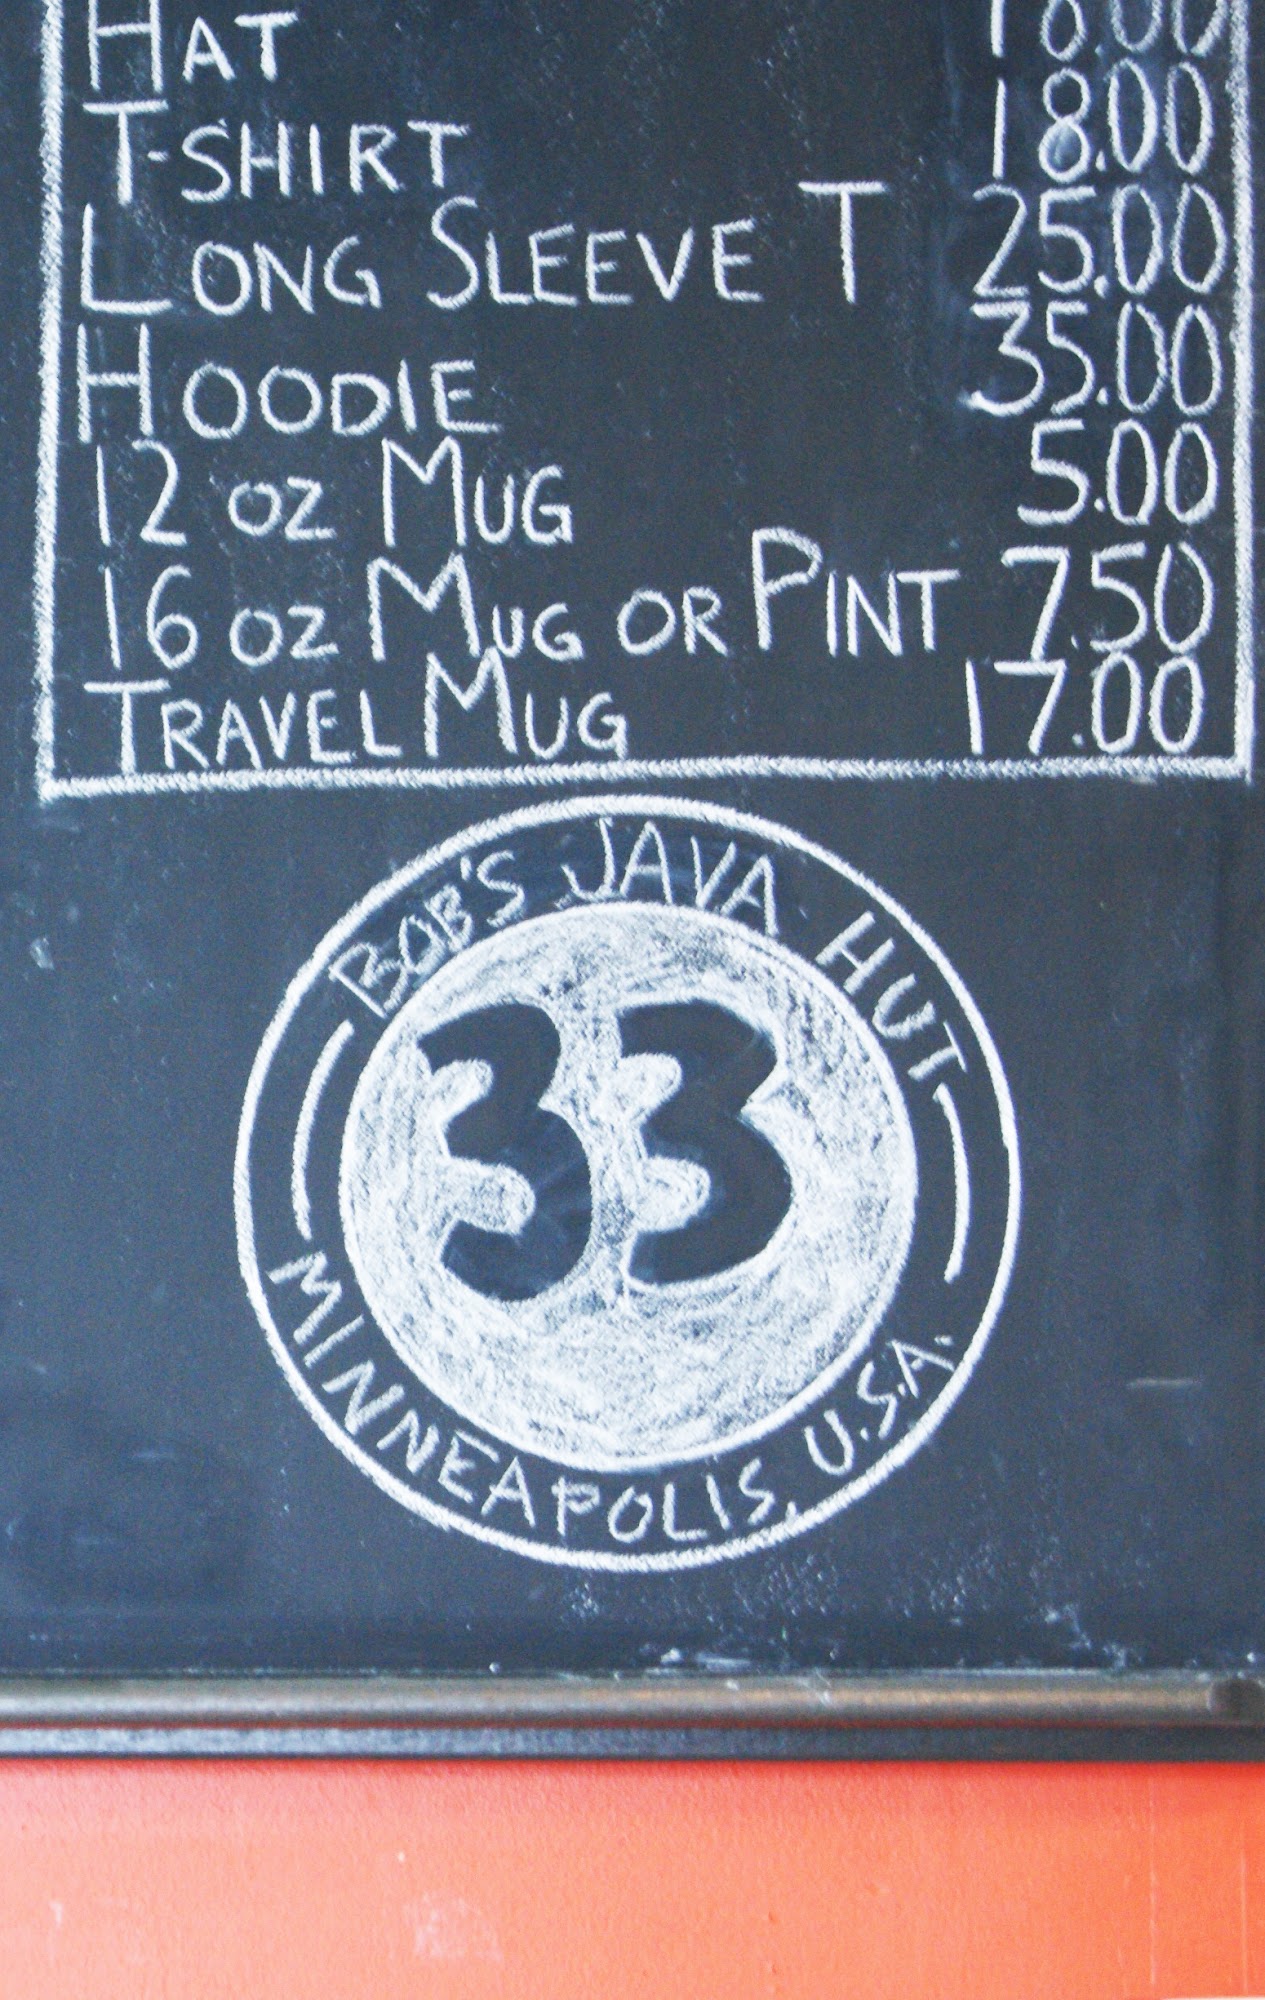 HAT
T-SHIRT 18.00
LONG SLEEVE T 25.00
HOODIE 35.00
12 OZ MUG 5.00
16 OZ MUG OR PINT 7.50
TRAVEL MUG 17.00
BOB'S JAVA HUT
33
MINNEAPOLIS, U.S.A.